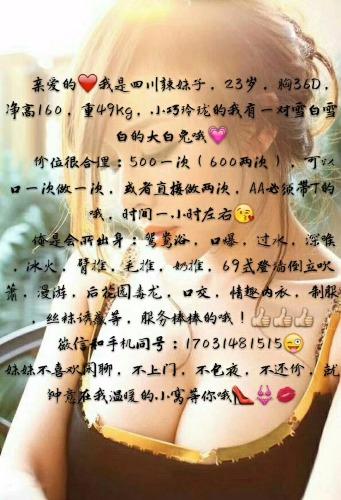 亲爱的❤️我是四川辣妹子，23岁，胸36D，
净高160，重49kg，小巧玲珑的我有一对雪白雪
白的大白兔哦💗
价位很合理：500一次（600两次），可以
口一次做一次，或者直接做两次，AA必须带T的
哦，时间一小时左右😘
俺是会所出身：鸳鸯浴，口爆，过水，深喉
，冰火，臂推，毛推，奶推，69式登描倒立吹
箫，漫游，后花园毒龙，口交，情趣内衣，制服
，丝袜诱惑等，服务棒棒的哦！👍👍👍
微信和手机同号：17031481515😜
妹妹不喜欢闲聊，不上门，不包夜，不还价，就
钟意在我温暖的小窝等你哦👠👙💋